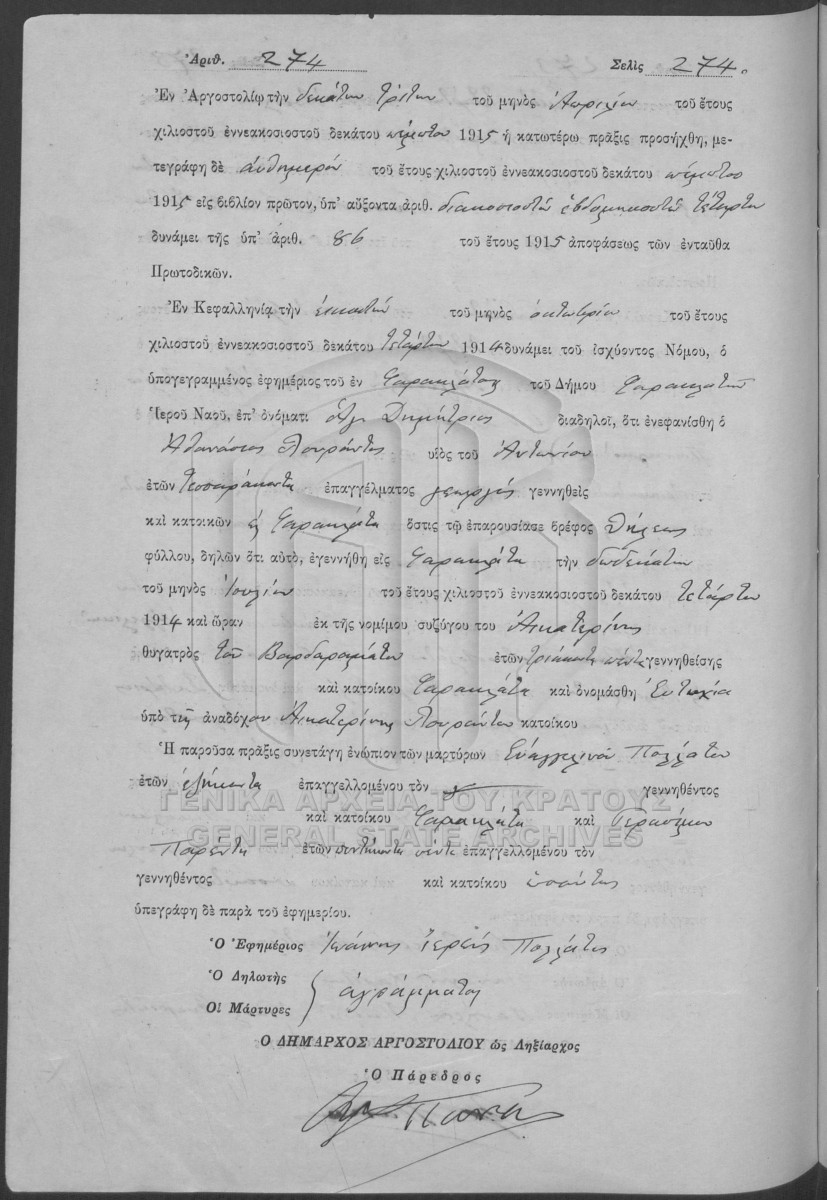 Ἀριθ. 274 Σελὶς 274.
Ἐν Ἀργοστολίῳ τὴν δεκάτην τρίτην τοῦ μηνὸς Ἀπριλίου τοῦ ἔτους
χιλιοστοῦ ἐννεακοσιοστοῦ δεκάτου πέμπτου 1915 ἡ κατωτέρω πρᾶξις προσήχθη, με-
τεγράφη δὲ αὐθημερὸν τοῦ ἔτους χιλιοστοῦ ἐννεακοσιοστοῦ δεκάτου πέμπτου
1915 εἰς βιβλίον πρῶτον, ὑπ' αὔξοντα ἀριθ. διακοσιοστὸν ἑβδομηκοστὸν τέταρτον
δυνάμει τῆς ὑπ' ἀριθ. 86 τοῦ ἔτους 1915 ἀποφάσεως τῶν ἐνταῦθα
Πρωτοδικῶν.
Ἐν Κεφαλληνίᾳ τὴν εἰκοστὴν τοῦ μηνὸς ὀκτωβρίου τοῦ ἔτους
χιλιοστοῦ ἐννεακοσιοστοῦ δεκάτου τετάρτου 1914 δυνάμει τοῦ ἰσχύοντος Νόμου, ὁ
ὑπογεγραμμένος ἐφημέριος τοῦ ἐν Φαρακλάτοις τοῦ Δήμου Φαρακλάτων
Ἱεροῦ Ναοῦ, ἐπ' ὀνόματι Ἁγ Δημήτριος διαδηλοῖ, ὅτι ἐνεφανίσθη ὁ
Ἀθανάσιος υἱὸς τοῦ Ἀντωνίου
ἐτῶν τεσσαράκοντα ἐπαγγέλματος γεωργὸς γεννηθεὶς
καὶ κατοικῶν εἰς Φαρακλάτα ὅστις τῷ ἐπαρουσίασε βρέφος θήλεως
φύλλου, δηλῶν ὅτι αὐτὸ, ἐγεννήθη εἰς Φαρακλάτα τὴν δωδεκάτην
τοῦ μηνὸς Ἰουλίου τοῦ ἔτους χιλιοστοῦ ἐννεακοσιοστοῦ δεκάτου τετάρτου
1914 καὶ ὥραν ἐκ τῆς νομίμου συζύγου του Αἰκατερίνης
θυγατρὸς τοῦ Βαρδαραμάτου ἐτῶν τριάκοντα πέντε γεννηθείσης
καὶ κατοίκου Φαρακλάτα καὶ ὀνομάσθη Εὐτυχία
ὑπὸ τῆς ἀναδόχου Αἰκατερίνης κατοίκου
Ἡ παροῦσα πρᾶξις συνετάγη ἐνώπιον τῶν μαρτύρων Εὐαγγελινοῦ Πολλάτου
ἐτῶν ἑξήκοντα ἐπαγγελλομένου τὸν γεννηθέντος
καὶ κατοίκου Φαρακλάτα καὶ Γερασίμου
ἐτῶν πεντήκοντα πέντε ἐπαγγελλομένου τὸν
γεννηθέντος καὶ κατοίκου ὡσαύτως
ὑπεγράφη δὲ παρὰ τοῦ ἐφημερίου.
Ὁ Ἐφημέριος Ἰωάννης Ἱερεὺς Πολλάτος
Ὁ Δηλωτὴς
Οἱ Μάρτυρες } ἀγράμματος
Ο ΔΗΜΑΡΧΟΣ ΑΡΓΟΣΤΟΛΙΟΥ ὡς Ληξίαρχος
Ὁ Πάρεδρος
ΓΕΝΙΚΑ ΑΡΧΕΙΑ ΤΟΥ ΚΡΑΤΟΥΣ
GENERAL STATE ARCHIVES